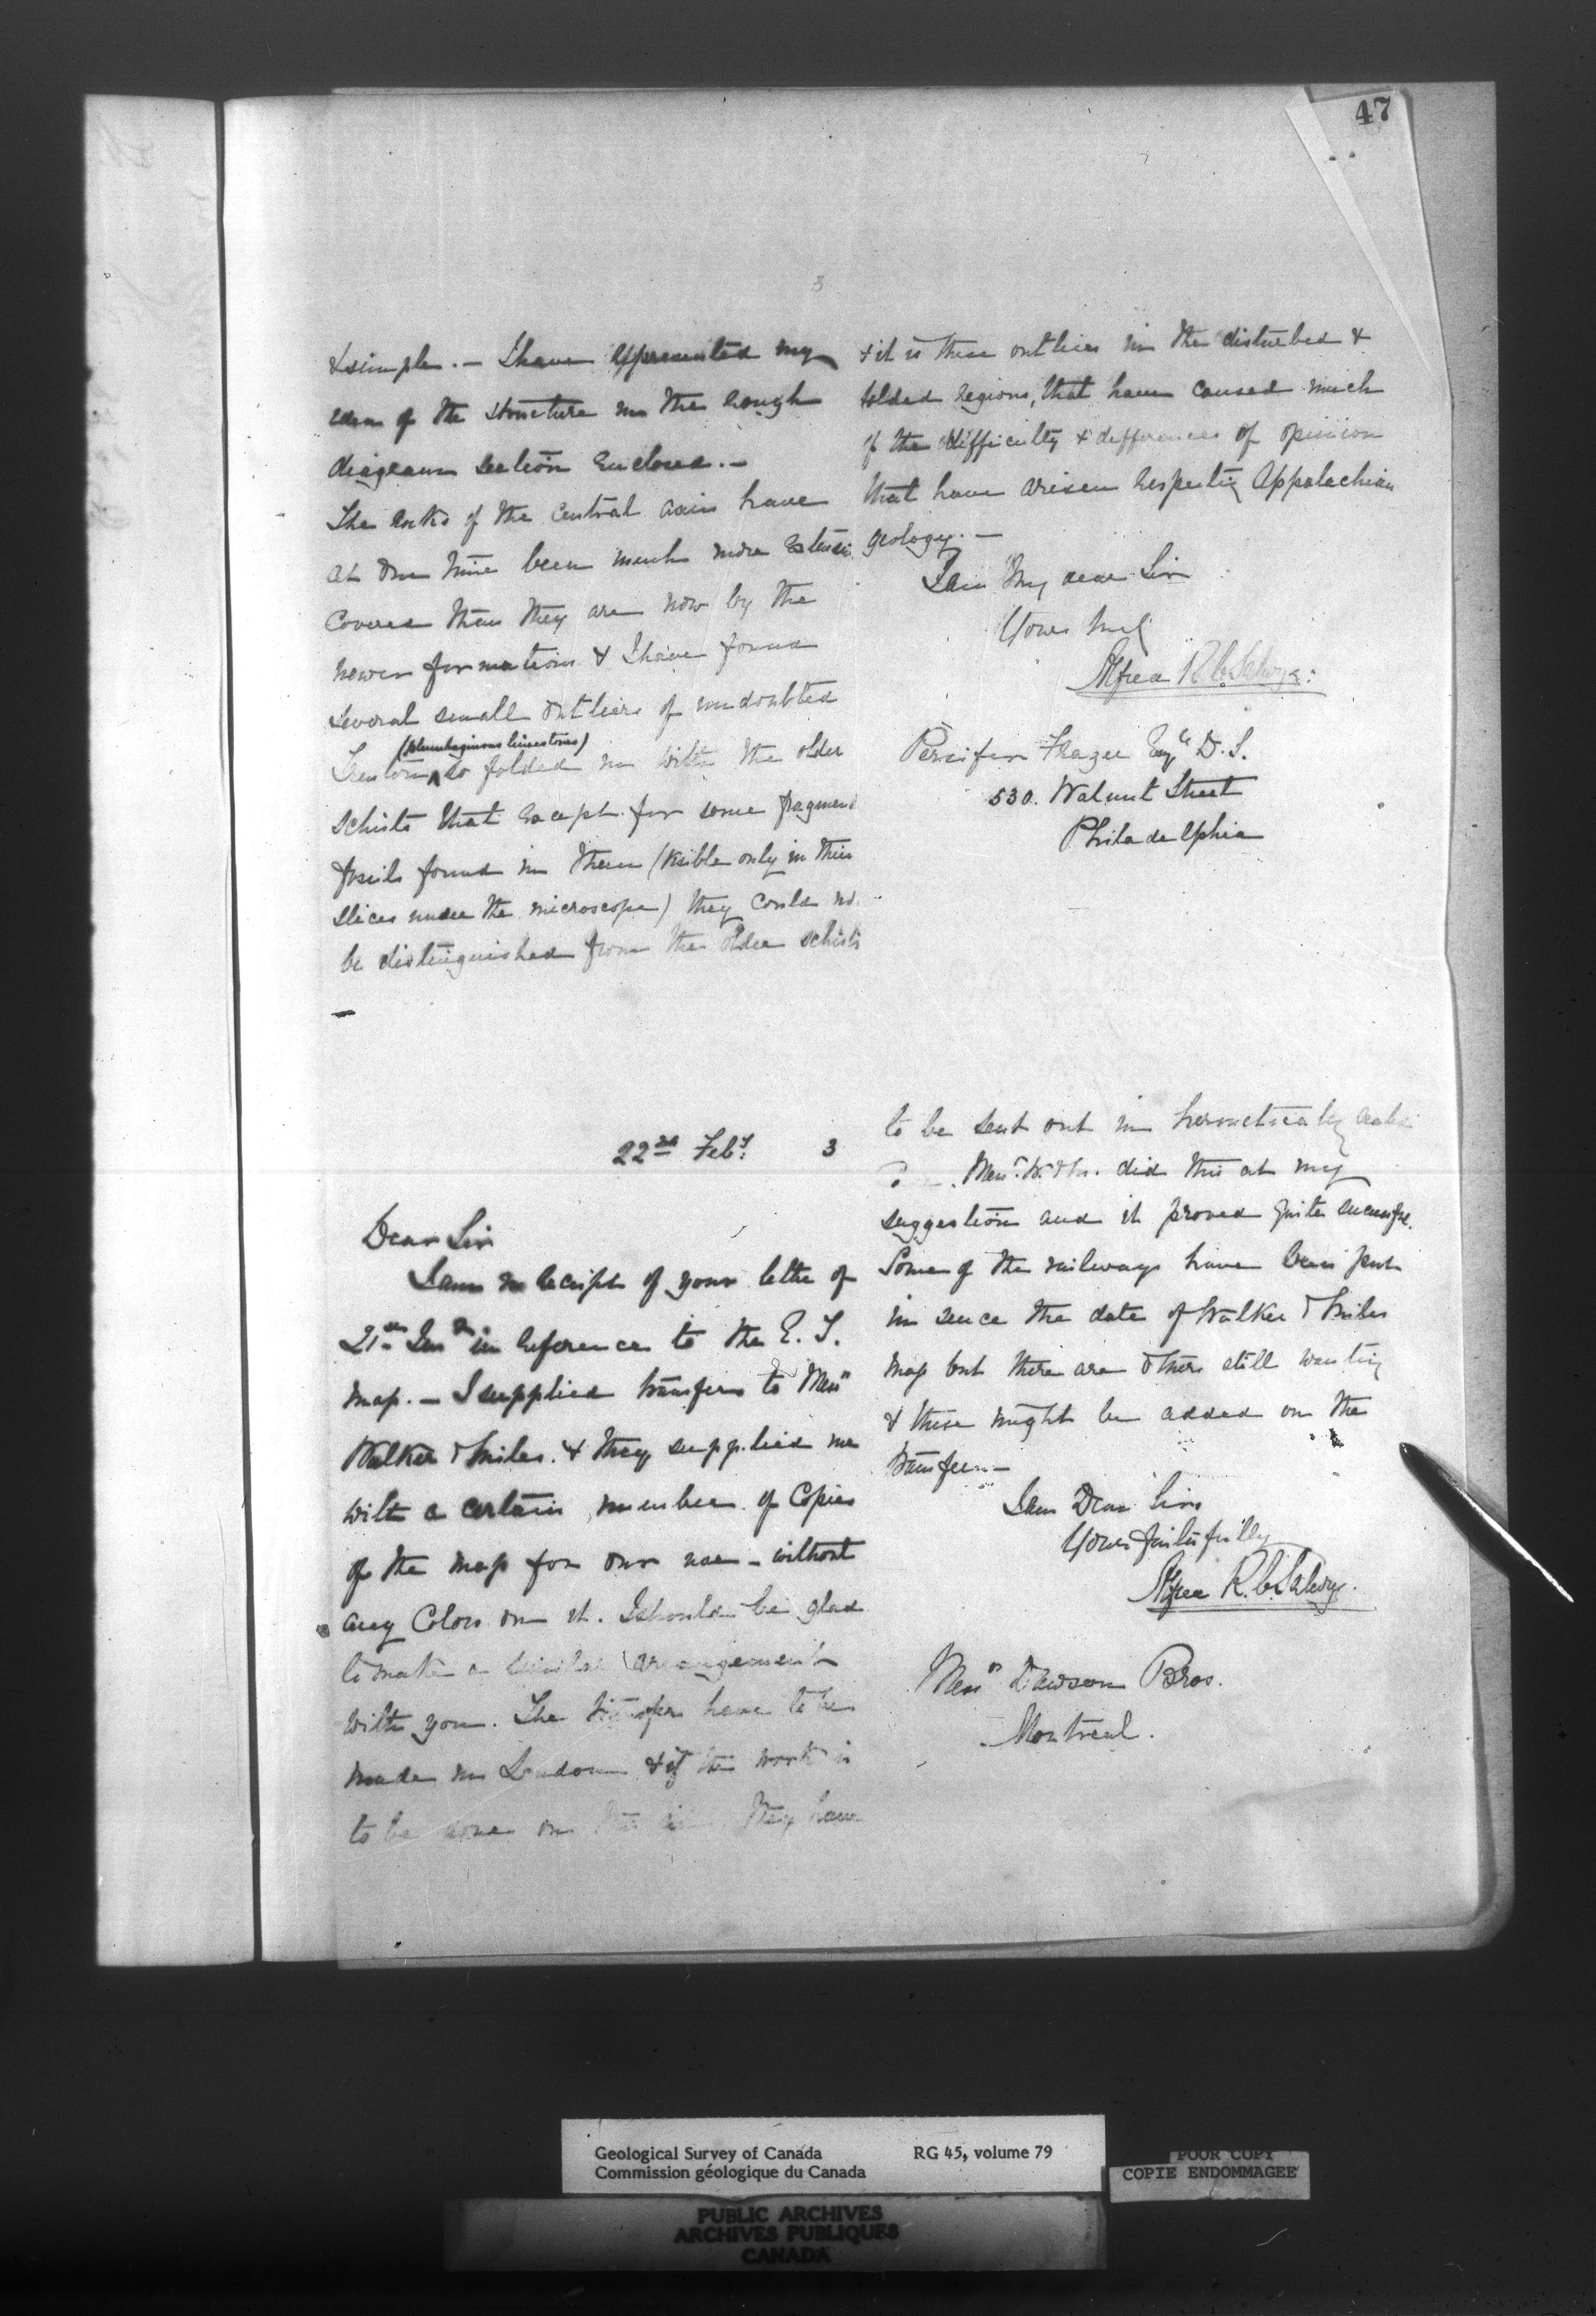 47
3
& simple. — I have represented my
idea of the structure in the rough
diagram section enclosed. —
The rocks of the central axis have
at one time been much more extensi
covered than they are now by the
newer formations & I have found
several small outliers of undoubted
(plumbaginous limestones)
Trenton so folded in with the older
schists that except for some fragmen
fossils found in them (visible only in thin
slices under the microscope) they could no
be distinguished from the older schists
—
& it is these outliers in the disturbed &
folded regions, that have caused much
of the difficulty & differences of opinion
that have arisen respecting Appalachian
geology. —
I am My dear Sir
Yours truly
Alfred R C Selwyn.
Persifor Frazer Esqre D. S.
530. Walnut Street
Philadelphia
22nd Feby. 3
Dear Sir
I am in receipt of your letter of
21st Inst in reference to the E. T.
map. — I supplied transfers to Messrs
Walker & Miles. & they supplied me
with a certain number of copies
of the map for our use — without
any Colors on it. I should be glad
to make a similar arrangement
with you. The transfers have to be
made in London & if the work is
to be done on they have
to be sent out in hermetically sealed
Messrs. W. & M. did this at my
suggestion and it proved quite successful.
Some of the railways have been put
in sence the date of Walker & Miles
map but there are others still wanting
& these might be added on the
transfer. —
I am Dear Sirs
Yours faithfully
Alfred R. C. Selwyn.
Messrs Dawson Bros.
Montreal.
Geological Survey of Canada RG 45, volume 79
Commission géologique du Canada
POOR COPY
COPIE ENDOMMAGEE
PUBLIC ARCHIVES
ARCHIVES PUBLIQUES
CANADA